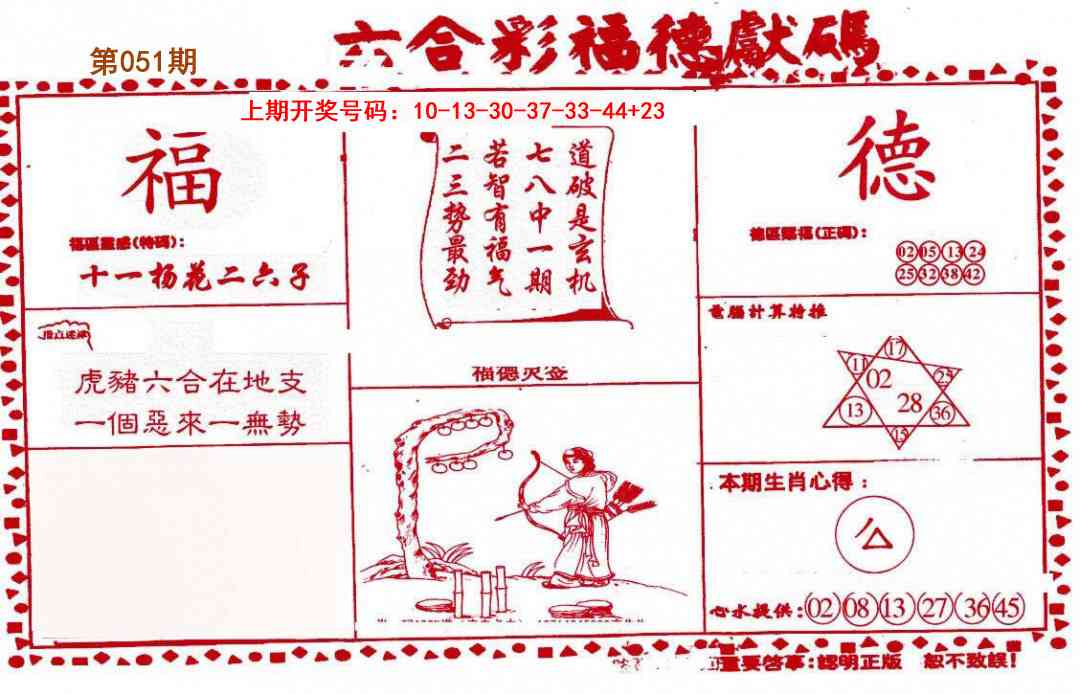 六合彩福德獻碼
第051期
上期开奖号码：10-13-30-37-33-44+23
福
福區靈感(特碼):
十一杨花二六子
虎豬六合在地支
一個惡來一無勢
道破是玄机
七八中一期
若智有福气
二三势最劲
福德灵签
德
德區賜福(正碼):
02 05 13 24
25 32 38 42
電腦計算特推
17
11
02
25
13
28
36
15
本期生肖心得：
心水提供:02 08 13 27 36 45
重要啓事:認明正版 恕不致誤!